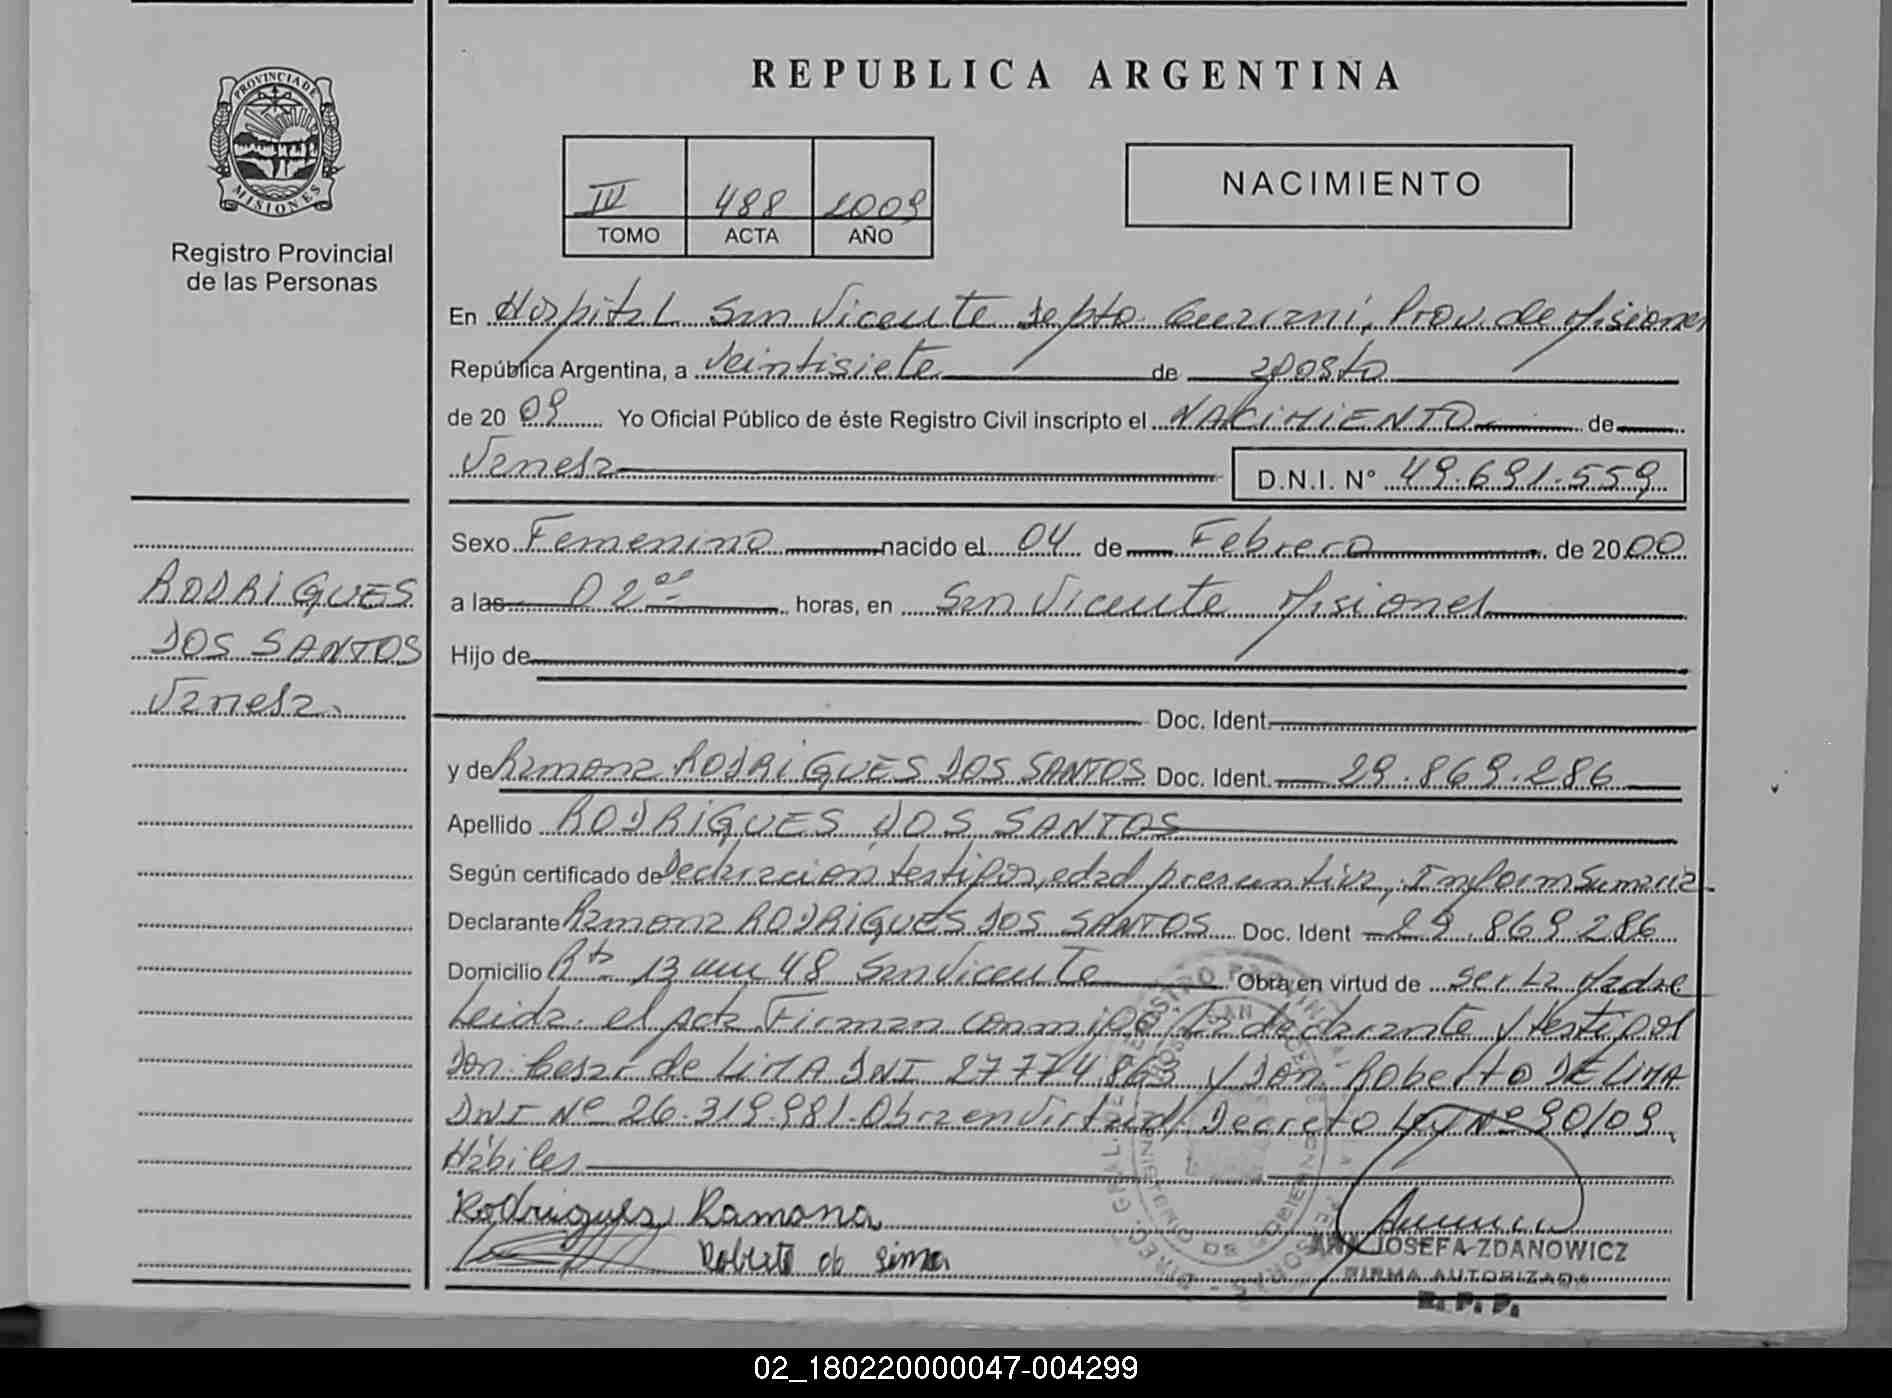 PROVINCIA DE
MISIONES
Registro Provincial
de las Personas
RODRIGUES
DOS SANTOS
Vanesa
REPUBLICA ARGENTINA
III 488 2009
TOMO ACTA AÑO
NACIMIENTO
En Hospital San Vicente Depto. Guarani, Prov. de Misiones
República Argentina, a Veintisiete de agosto
de 2009 Yo Oficial Público de éste Registro Civil inscripto el NACIMIENTO de
Vanesa D.N.I. N° 49.691.559
Sexo Femenino nacido el 04 de Febrero de 2000
a las 02 00 horas, en San Vicente Misiones
Hijo de
Doc. Ident.
y de Ramona RODRIGUES DOS SANTOS Doc. Ident. 29.869.286
Apellido RODRIGUES DOS SANTOS
Según certificado de Declaración testigos, edad presuntiva, Inform Sumaria
Declarante Ramona RODRIGUES DOS SANTOS Doc. Ident 29.869.286
Domicilio Rta 13 km 48 San Vicente Obra en virtud de ser La Madre
Leida el acta Firman conmigo La declarante y testigos
Don Cesar de LIMA DNI 27774.863 y Don Roberto DE LIMA
DNI Nº 26.319.981. Obra en virtud Decreto Ley Nº 90/09
Hábiles
Rodrigues Ramona
Roberto de Lima
ANA JOSEFA ZDANOWICZ
FIRMA AUTORIZADA
R. P. P.
02_180220000047-004299